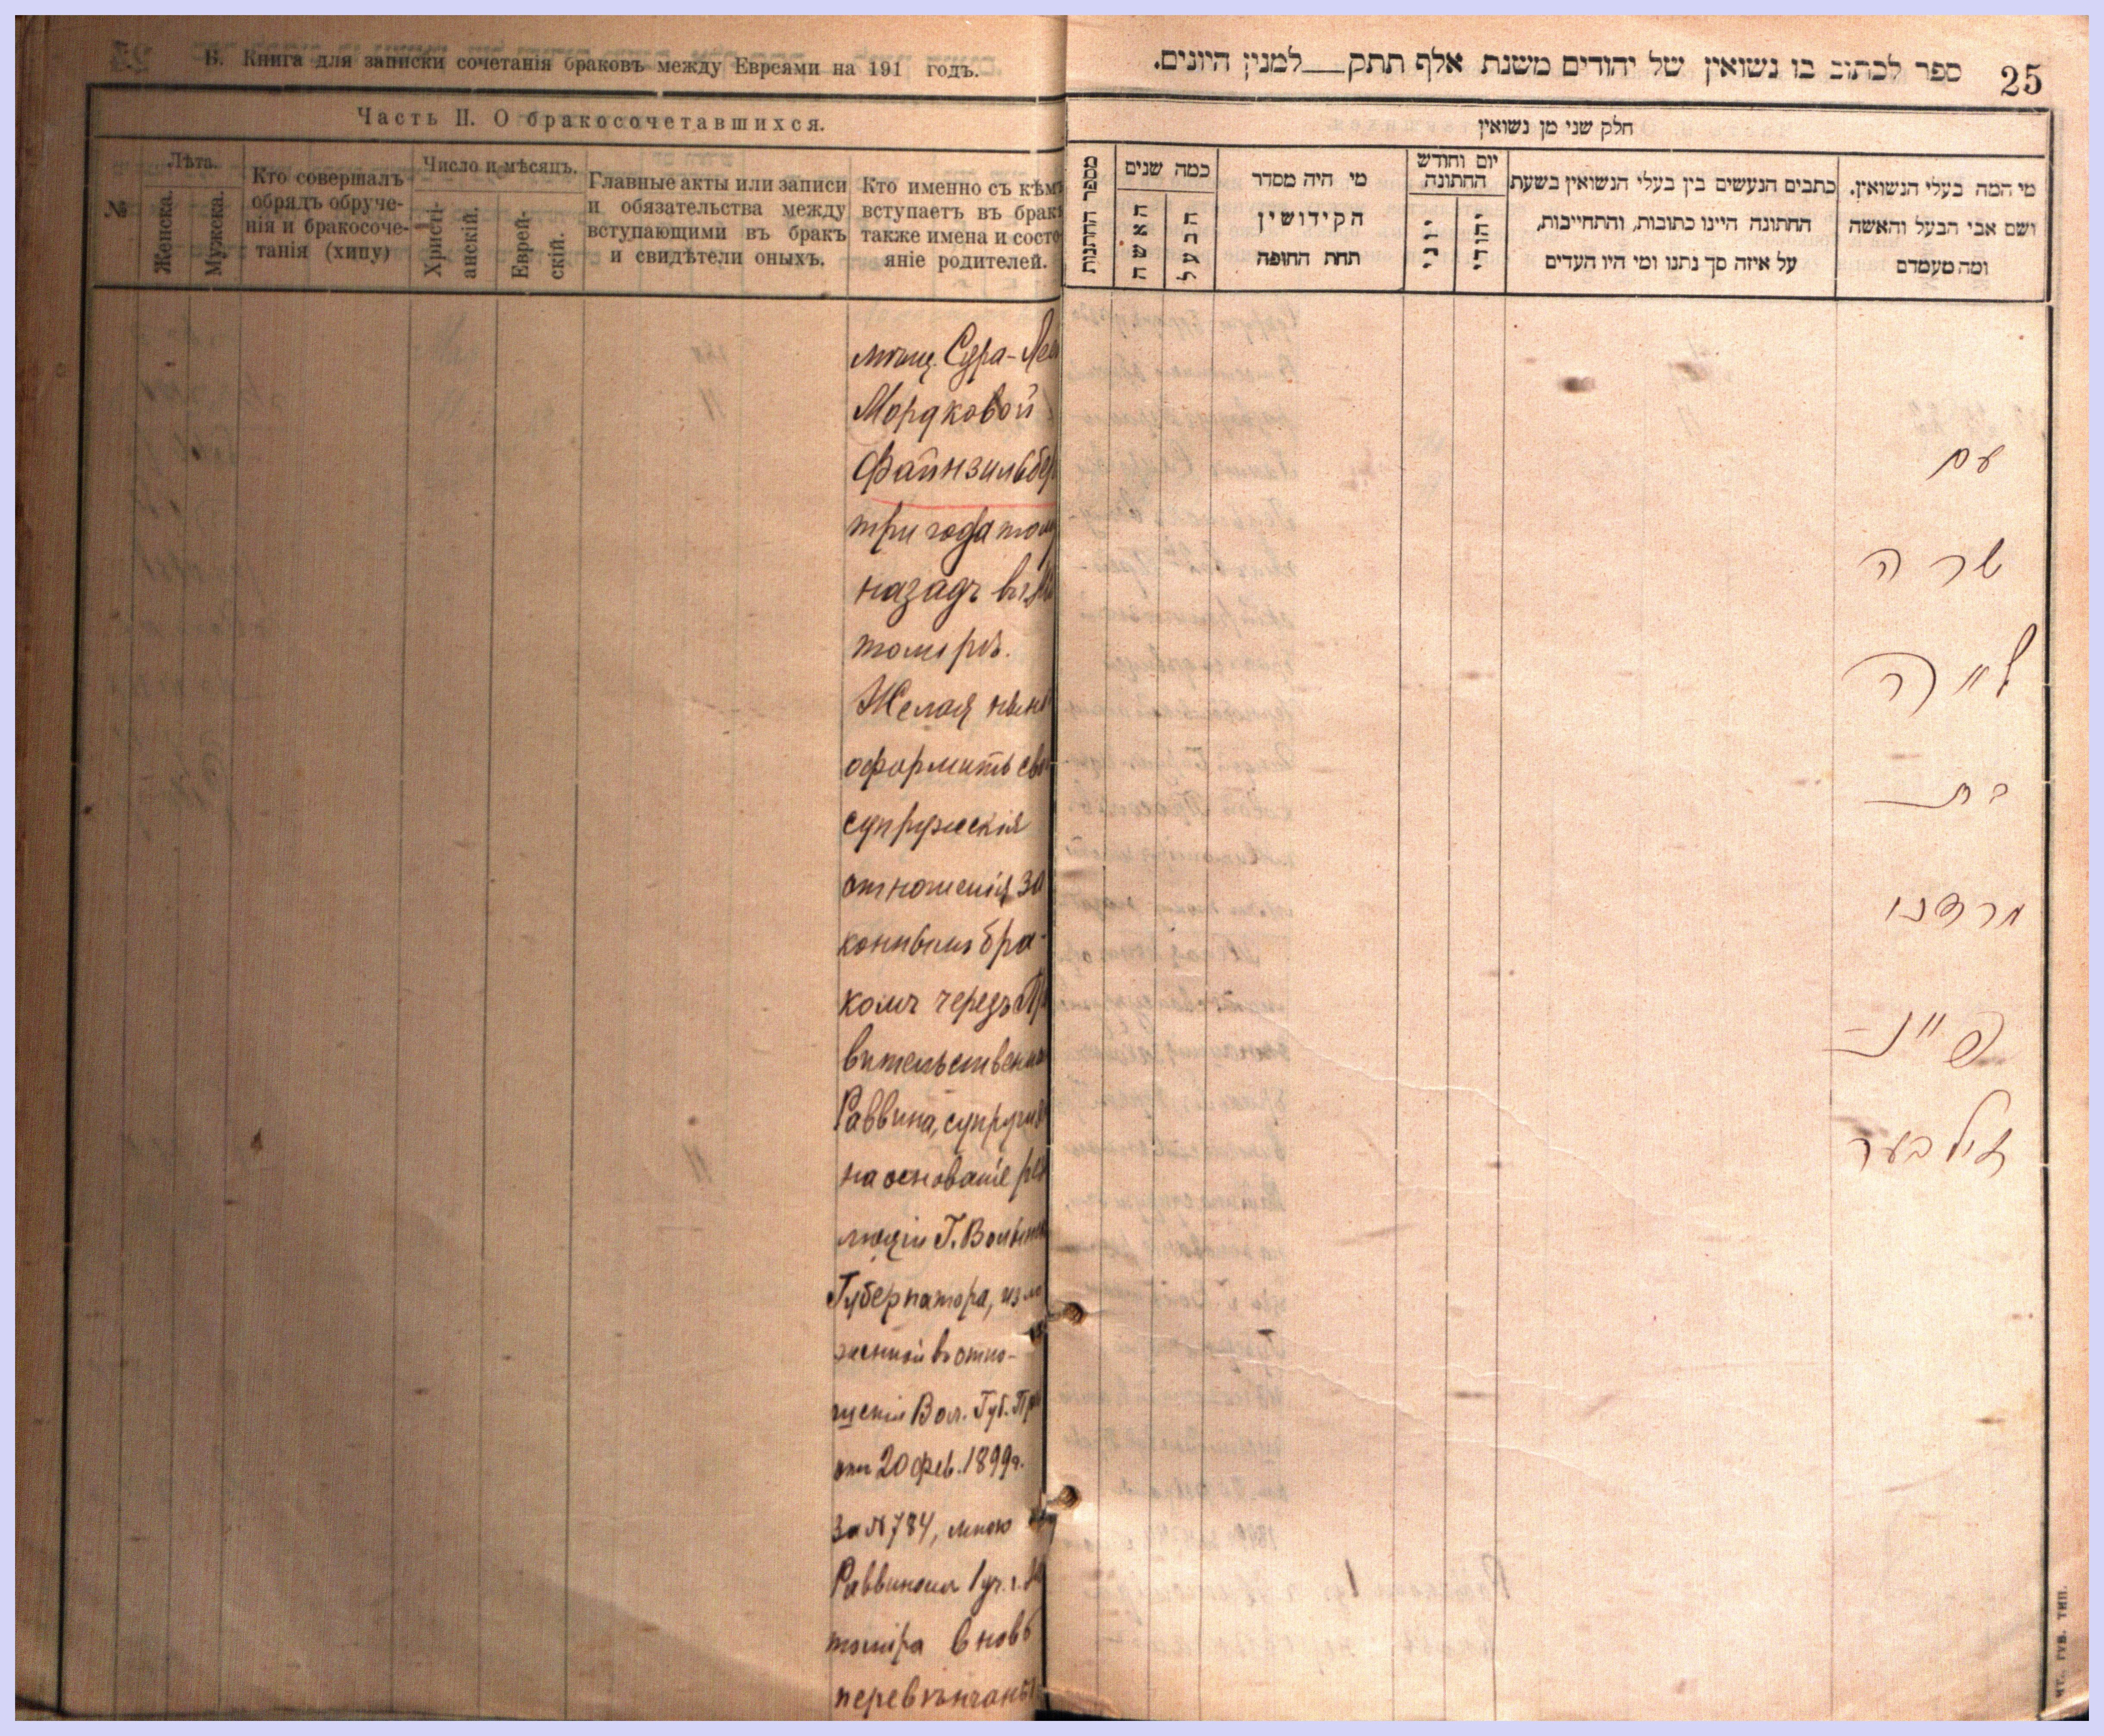 Б. Книга для записки сочетанія браковъ между Евреями на 191 годъ.
Часть II. О бракосочетавшихся.
№
Лѣта.
Женска.
Мужска.
Кто совершалъ
обрядъ обруче-
нія и бракосоче-
танія (хипу)
Число и мѣсяцъ.
Христі-
анскій.
Еврей-
скій.
Главные акты или записи
и обязательства между
вступающими въ бракъ
и свидѣтели оныхъ.
Кто именно съ кѣмъ
вступаетъ въ бракъ
также имена и состо
яніе родителей.
мѣщ. Сура-Лея
Мордковой
Файнзильбер
три года тому
назадъ въ
томірѣ.
Желая нынѣ
оформить сво
супружескія
отношенія за
коннымъ бра-
комъ черезъ Пра
вительственна
Раввина, супруги
на основаніе резо
люціи Г. Волынск
Губернатора, изло
женной въ отно-
шеніи Вол. Губ. Пра
отъ 20 фев. 1899 г.
за № 784, мною
Раввиномъ 1 уч. г. Жи
томіра вновь
перевѣнчаны
ספר לכתוב בו נשואין של יהודים משנת אלף תתק___למנין היונים.
25
חלק שני מן נשואין
מספר החתנות
כמה שנים
האשה
הבעל
מי היה מסדר
הקידושין
תחת החופה
יום וחודש
החתונה
יוני
יהודי
כתבים הנעשים בין בעלי הנשואין בשעת
החתונה היינו כתובות, והתחייבות,
על איזה סך נתנו ומי היו העדים
מי המה בעלי הנשואין.
ושם אבי הבעל והאשה
ומה מעמדם
עם
שרה
לייה
בת
מרדכי
פיינ–
זילבער
ЧТ. ГУБ. ТИП.